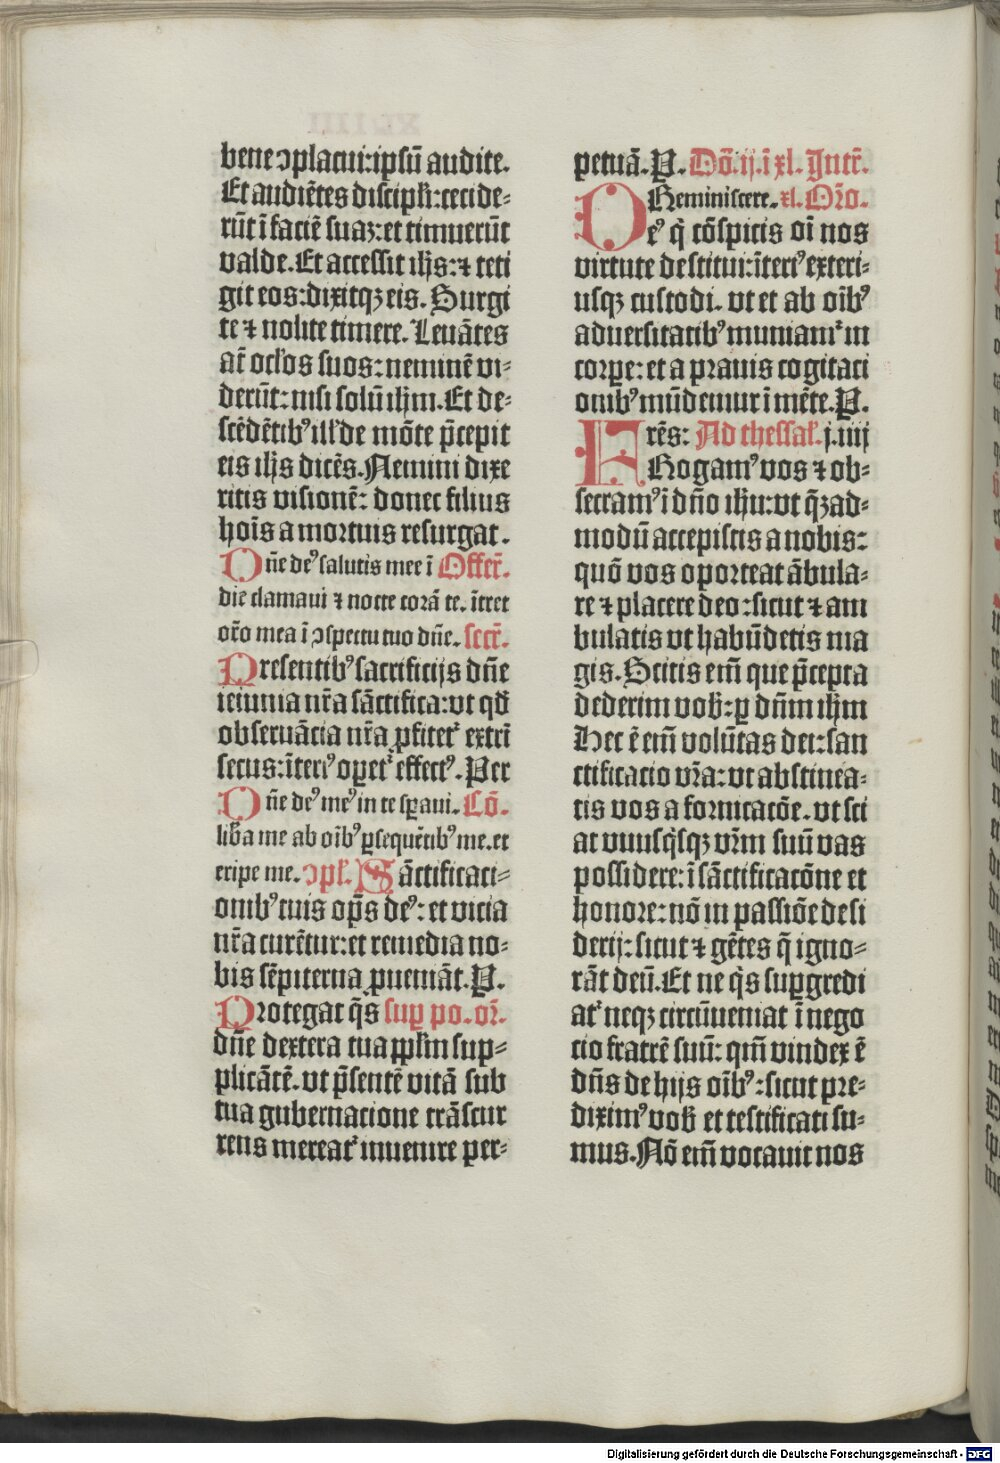 bene ↄplacui:ipsū audite.
Et audiētes discipłi:cecide-
rūt ī faciē suaʒ:et timuerūt
valde. Et accessit ihs:⁊ teti
git eos:dixitqʒ eis. Surgi
te ⁊ nolite timere. Leuātes
aūt ocłos suos:neminē vi-
derūt:nisi solū ihm. Et de-
scēdētibꝰ illꝭ de mōte p̄cepit
eis ihs dicēs. Nemini dixe
ritis visionē: donec filius
hoīs a mortuis resurgat.
Dn̄e deꝰ salutis mee ī Offer̄.
die clamaui ⁊ nocte corā te. ītret
or̄o mea ī ↄspectu tuo dn̄e. secr̄.
Presentibꝰ sacrificijs dn̄e
ieiunia nr̄a sāctifica:vt qd̄
obseruācia nr̄a ꝓfitetꝛ extrī
secus:īteriꝰ oꝑetꝛ effectꝰ. Per
Dn̄e deꝰ meꝰ in te sꝑaui. Cō.
liƀa me ab oībꝰ ꝑsequētibꝰ me.et
eripe me. ↄpł. Sāctificaci-
onibꝰ tuis op̄s deꝰ: et vicia
nr̄a curētur:et remedia no-
bis sēpiterna ꝓueniāt. P.
Protegat q̄s sup po. or̄.
dn̄e dextera tua ppłm sup-
plicātē. vt p̄sentē vitā sub
tua gubernacione trāscur
rens mereatꝛ inuenire per-
petuā. P. Dō. ij. ī xl. Intr̄.
Reminiscere. xl. Or̄o.
Deꝰ q̄ cōspicis oī nos
virtute destitui:īteriꝰ exteri-
usqʒ custodi. vt et ab oībꝰ
aduersitatibꝰ muniamꝛ in
corꝑe: et a prauis cogitaci
onibꝰ mūdemur ī mēte. P.
Frēs: Ad thessał. j. iiij
Rogamꝰ vos ⁊ ob-
secramꝰ ī dn̄o ihu:vt q̄ʒad-
modū accepistis a nobis:
quō vos oporteat ābula-
re ⁊ placere deo:sicut ⁊ am
bulatis vt habūdetis ma
gis. Scitis em̄ que p̄cepta
dederim voƀ: ꝑ dn̄m ihm
Hec ē em̄ volūtas dei:san
ctificacio vr̄a: vt abstinea-
tis vos a fornicacōe. vt sci
at vnusq̄sqʒ vr̄m suū vas
possidere: ī sāctificacōne et
honore: nō in passiōe desi
derij: sicut ⁊ gētes q̄ igno-
rāt deū. Et ne q̄s supgredi
atꝛ neqʒ circūueniat ī nego
cio fratrē suū: qm̄ vindex ē
dn̄s de hijs oībꝰ: sicut pre-
diximꝰ voƀ et testificati su-
mus. Nō em̄ vocauit nos
Digitalisierung gefördert durch die Deutsche Forschungsgemeinschaft - DFG